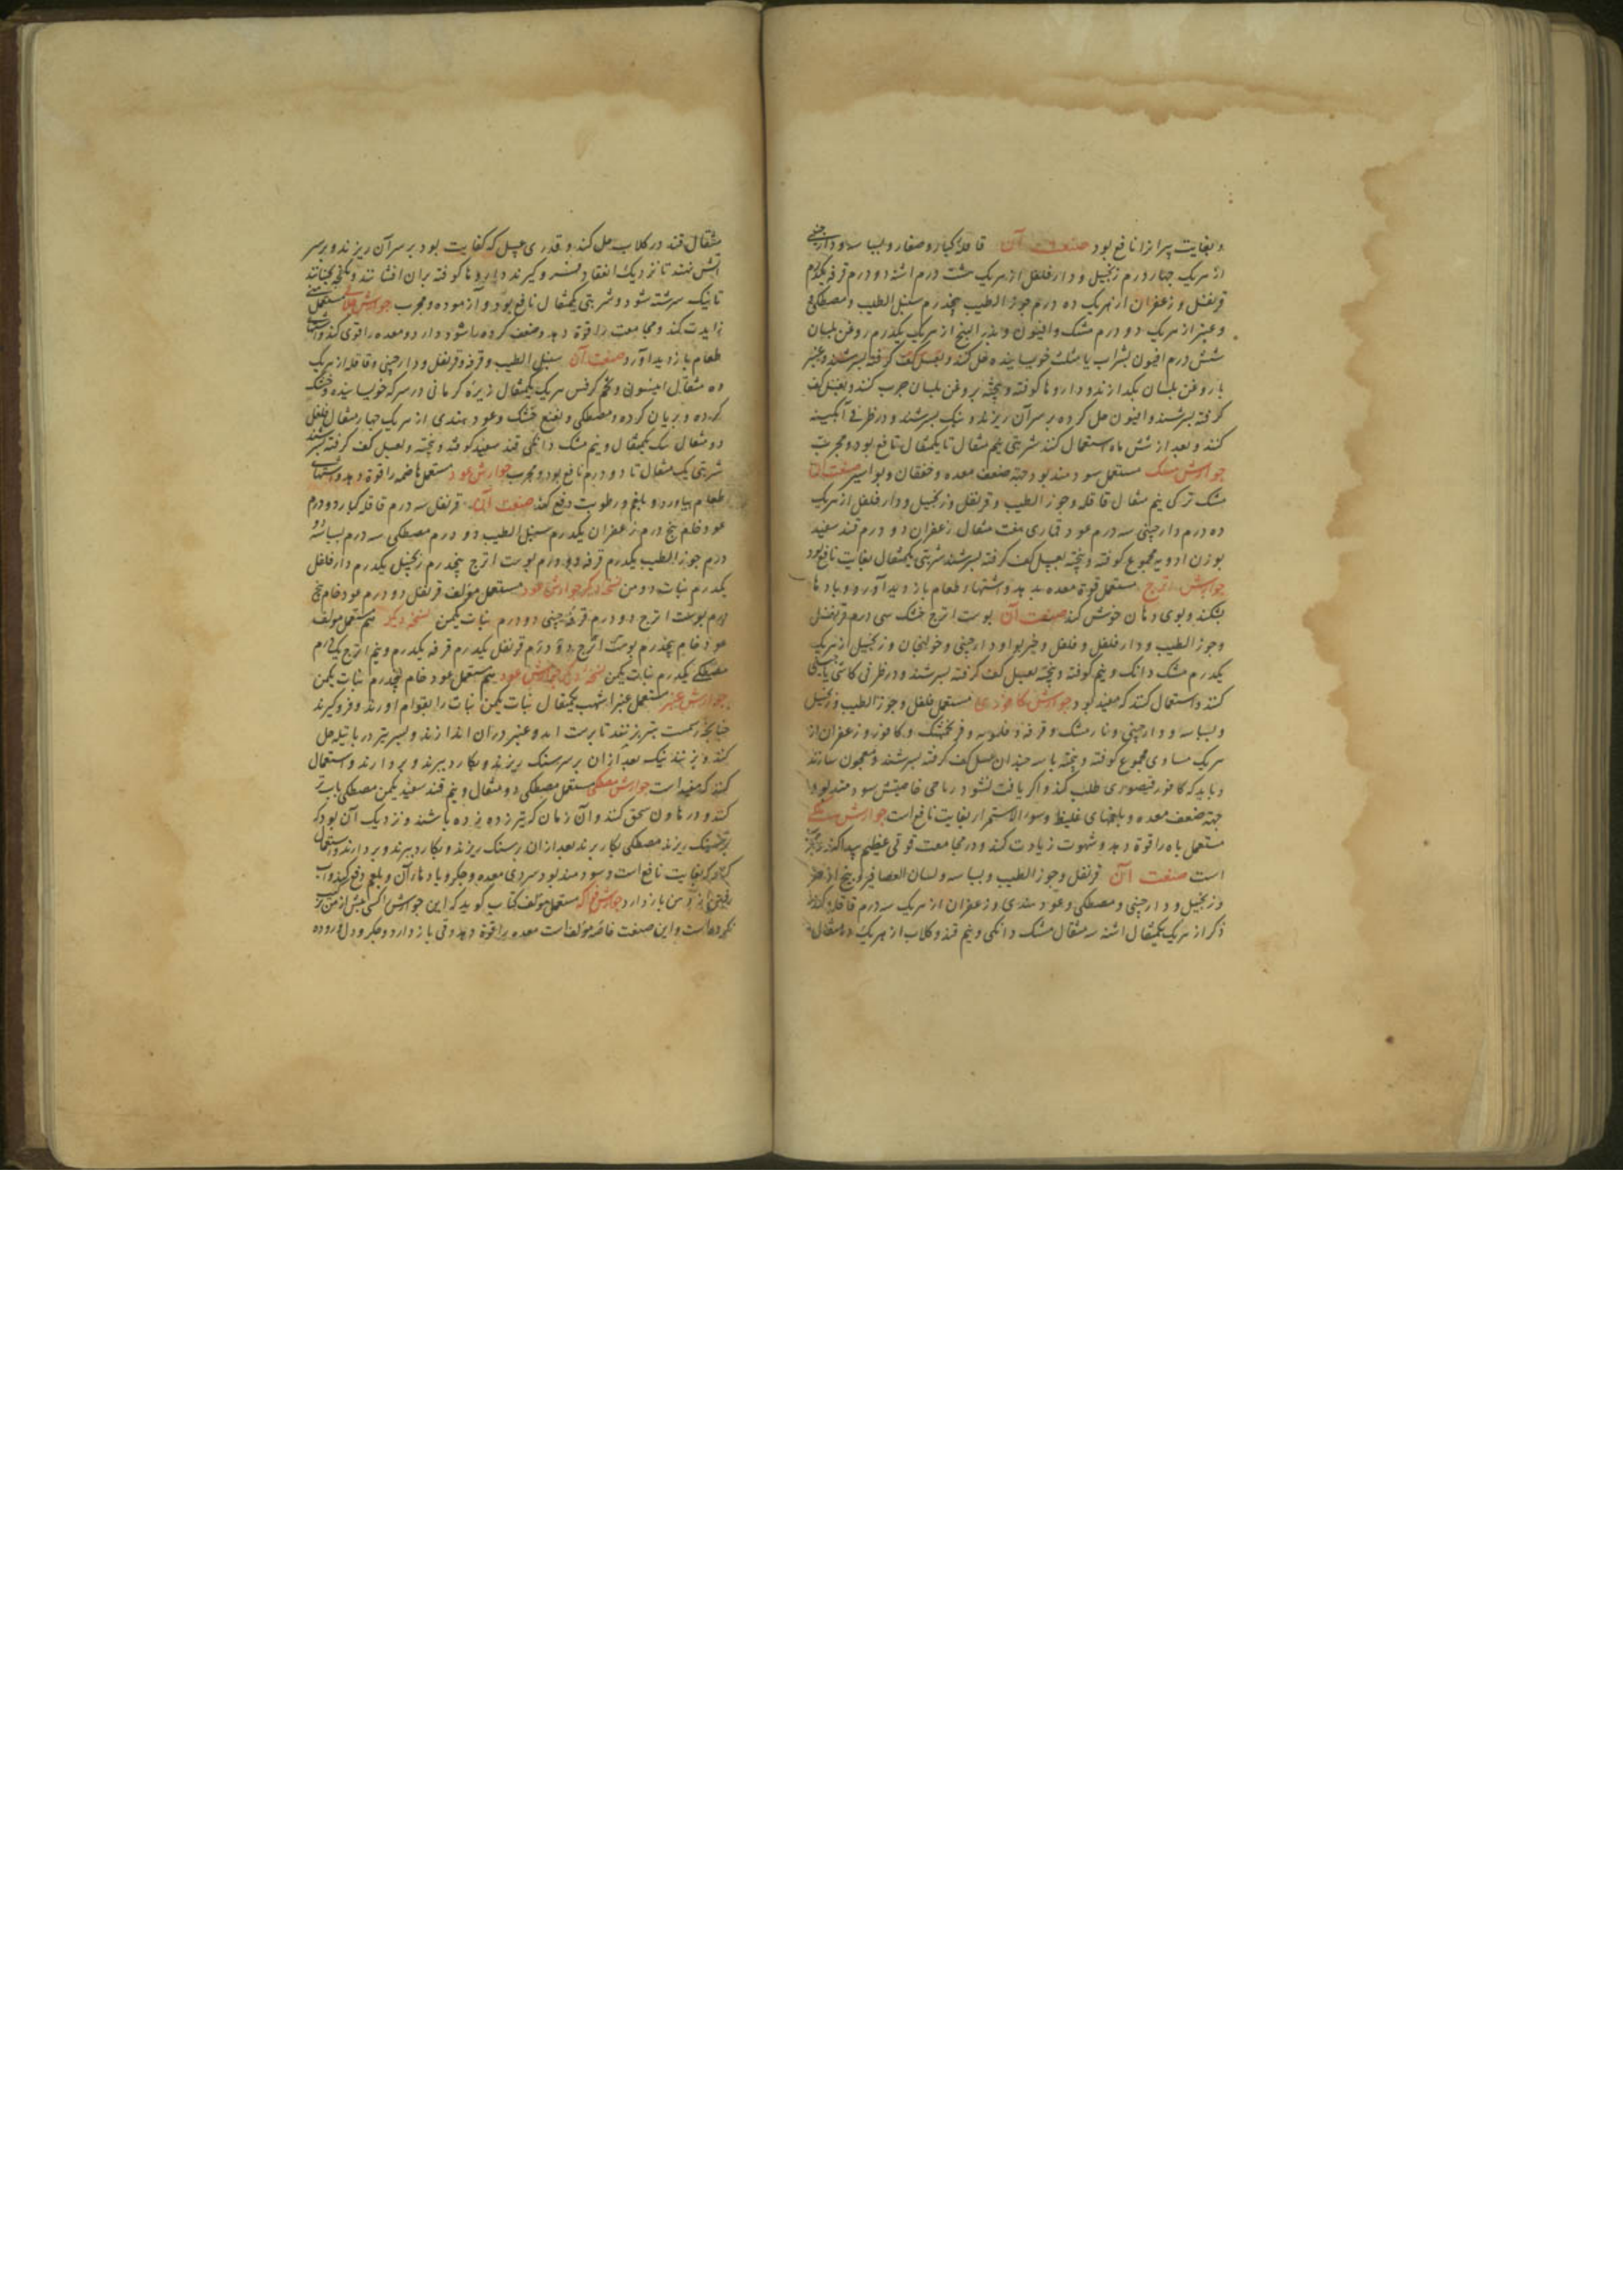 و بغایت پیرانرا نافع بود صنعت آن قاقلهٔ کبار و صغار و بسباسه و دارچینی
از هریک چهار درم زنجبیل و دارفلفل از هریک هشت درم اشنه دو درم قرفه یکدرم
قرنفل و زعفران از هریک ده درم جوز الطیب پنجدرم سنبل الطیب و مصطکی
و عنبر از هریک دو درم مشک و افیون و بذر البنج از هریک یکدرم روغن بلسان
شش درم افیون بشراب یا مثلث خوبسانیده حل کنند و بعسل کف گرفته بسرشند و عنبر
با روغن بلسان بگدازند و داروها کوفته و پیخته بروغن بلسان چرب کنند و بعسل کف
گرفته بسرشند و افیون حل کرده بر سر آن ریزند و نیک بسرشند و در ظرفی آبگینه
کنند و بعد از شش ماه استعمال کنند شربتی نیم مثقال تا یکمثقال نافع بود و مجربست
جوارش مشک مستعمل سودمند بود جهة ضعف معده و خفقان و بواسیر صنعت آن
مشک ترکی نیم مثقال قاقله و جوز الطیب و قرنفل و زنجبیل و دارفلفل از هریک
ده درم دارچینی سه درم عود قماری هفت مثقال زعفران دو درم قند سفید
بوزن ادویه مجموع کوفته و پخته بعسل کف گرفته بسرشند شربتی یکمثقال بغایت نافع بود
جوارش اترج مستعمل قوة معده بدهد و شتهاء طعام بازدید آورد و بادها
بشکند و بوی دهان خوش کند صنعت آن پوست اترج خشک سی درم قرنفل
و جوز الطیب و دارفلفل و فلفل و خیربوا و دارچینی و خولنجان و زنجبیل از هریک
یکدرم مشک دانک و نیم کوفته و پخته بعسل کف گرفته بسرشند و در ظرفی کاشی یا چینی
کنند و استعمال کنند که مفید بود جوارش کافوری مستعمل فلفل و جوز الطیب و زنجبیل
و بسباسه و دارچینی و نارمشک و قرفه و فلنجه و فرنجمشک و کافور و زعفران از
هریک مساوی مجموع کوفته و پخته با سه چندان عسل کف گرفته بسرشند و معجون سازند
و باید که کافور قیصوری طلب کنند و اگر یافت نشود رباحی خاصیتش سودمند بود
جهة ضعف معده و بلغمهای غلیظ و سوء الاستمرا بغایت نافع است جوارش
مستعمل باه را قوة دهد و شهوت زیادت کند و در مجامعت قوتی عظیم پیدا کند و مجرب
است صنعت آن قرنفل و جوز الطیب و بسباسه و لسان العصافیر و بیخ اذخر
و زنجبیل و دارچینی و مصطکی و عود هندی و زعفران از هریک سه درم قاقله
ذکر از هریک یکمثقال اشنه سه مثقال مشک دانکی و نیم قند و کلاب از هریک ده مثقال
مثقال قند در کلاب حل کنند و قدری عسل که کفایت بود بر سر آن ریزند و بر سر
آتش نهند تا نزدیک انعقاد فرو گیرند و داروها کوفته بران افشانند و بجنبانند
تا نیک سرشته شود و شربتی یکمثقال نافع بود و آزموده و مجرب جوارش مستعمل
زایدت کند و مجامعت را قوة دهد و ضعف گرده باشود دارد و معده را قوی کند و اشتهای
طعام بازدید آورد صنعت آن سنبل الطیب و قرفه و قرنفل و دارچینی و قاقله از هریک
ده مثقال انیسون و تخم کرفس هریک یکمثقال زیرهٔ کرمانی در سرکه خویسانیده و خشک
کرده و بریان کرده و مصطکی و نعنع خشک و عود هندی از هریک چهار مثقال فلفل
دو مثقال سک یکمثقال و نیم مشک دانکی قند سفید کوفته و پخته و بعسل کف گرفته بسرشند
شربتی یک مثقال تا دو درم نافع بود و مجرب جوارش عود مستعمل هاضمه را قوة دهد و اشتهای
طعام بیاورد و بلغم و رطوبت دفع کند صنعت آن قرنفل سه درم قاقله کبار دو درم
عود خام پنج درم زعفران یکدرم سنبل الطیب دو درم مصطکی سه درم بسباسه دو
درم جوز الطیب یکدرم قرفه دو درم پوست اترج پنجدرم زنجبیل یکدرم دارفلفل
یکدرم نبات دو من نسخهٔ دیگر جوارش عود مستعمل مؤلف قرنفل دو درم عود خام پنج
درم پوست اترج دو درم قرفهٔ چینی دو درم نبات یکمن نسخهٔ دیگر هم مستعمل مؤلف
عود خام پنجدرم پوست اترج دو درم قرنفل یکدرم قرفه یکدرم و نیم اترج یکدرم
مصطکی یکدرم نبات یکمن نسخهٔ دیگر جوارش عود هم مستعمل عود خام پنجدرم نبات یکمن
جوارش عنبر مستعمل عنبر اشهب یکمثقال نبات یکمن نبات را بقوام آورند و فرو گیرند
چنانچه رسمست بتبریزند تا برست آید و عنبر در آن اندازند و بسر تبر در پاتیله حل
کنند و بزنند نیک بعد ازان بر سر سنک ریزند و بکارد ببرند و بردارند و استعمال
کنند که مفید است جوارش مصطکی مستعمل مصطکی دو مثقال و نیم قند سفید یکمن مصطکی باب تر
کنند و در هاون سحق کنند و آن زمان که تبر زده زده باشند و نزدیک آن بود که
بر سنک ریزند مصطکی بکار برند بعد ازان بر سنک ریزند و بکارد ببرند و بردارند و استعمال
کنند که بغایت نافع است و سودمند بود سردی معده و جگر و بادهاء آن و بلغم دفع کند و آب
رفتن از دهن باز دارد جوارش فواکه مستعمل مؤلف کتاب گوید که این جوارش کسی پیش از من
نکرده است و این صنعت خاصهٔ مؤلف است معده را قوة دهد و قی باز دارد و جگر و دل و روده